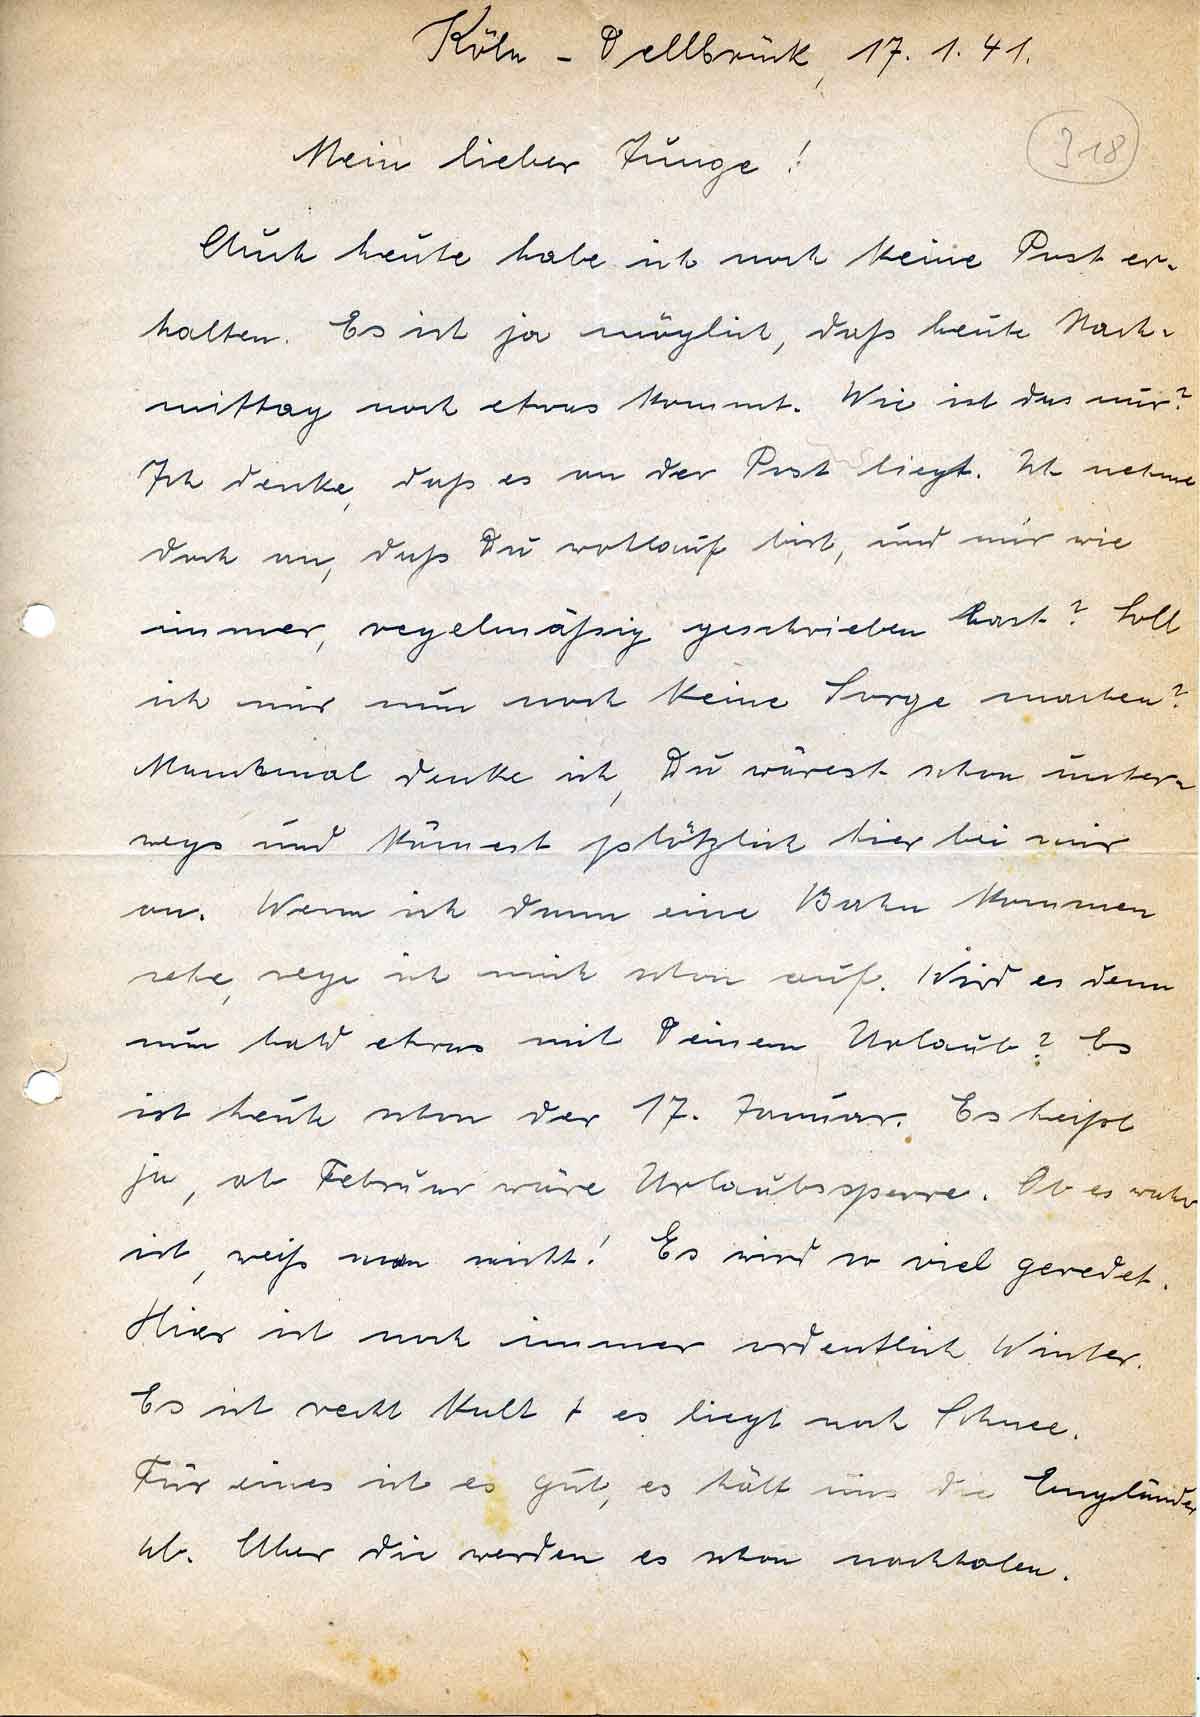 Köln - Dellbrück, 17. 1. 41.
318
Mein lieber Junge!
Auch heute habe ich noch keine Post er-
halten. Es ist ja möglich, daß heute Nach-
mittag noch etwas kommt. Wie ist das nur?
Ich denke, daß es an der Post liegt. Ich nehme
doch an, daß Du wohlauf bist, und mir wie
immer, regelmäßig geschrieben hast? Soll
ich mir nun noch keine Sorge machen?
Manchmal denke ich, Du wärest schon unter-
wegs und kämest plötzlich hier bei mir
an. Wenn ich dann eine Bahn kommen
sehe, rege ich mich schon auf. Wird es denn
nun bald etwas mit Deinem Urlaub? Es
ist heute schon der 17. Januar. Es heißt
ja, ab Februar wäre Urlaubssperre. Ob es wahr
ist, weiß man nicht! Es wird so viel geredet.
Hier ist noch immer ordentlich Winter.
Es ist recht kalt + es liegt noch Schnee.
Für eines ist es gut, es hält uns die Engländer
ab. Aber die werden es schon nachholen.